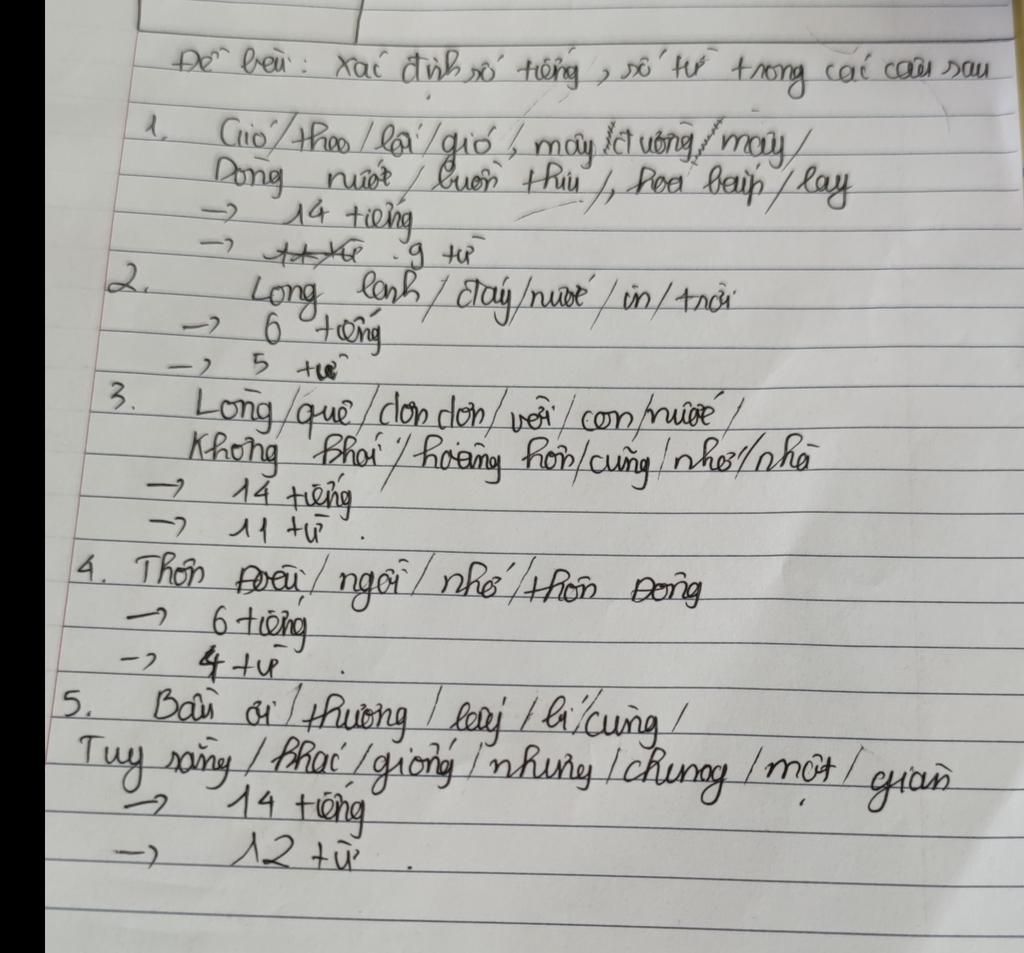 Đề bài: xác định số tiếng, số từ trong các câu sau
1. Gió / theo / lối / gió, mây / đường / mây /
Dòng nước / buồn thiu /, hoa bắp / lay
→ 14 tiếng
→ 9 từ
2. Long lanh / đáy / nước / in / trời
→ 6 tiếng
→ 5 từ
3. Lòng / quê / dợn dợn / vời / con / nước /
Không khói / hoàng hôn / cũng / nhớ / nhà
→ 14 tiếng
→ 11 từ.
4. Thôn Đoài / ngồi / nhớ / thôn Đông
→ 6 tiếng
→ 4 từ.
5. Bầu ơi / thương / lấy / bí / cùng /
Tuy rằng / khác / giống / nhưng / chung / một / giàn
→ 14 tiếng
→ 12 từ.